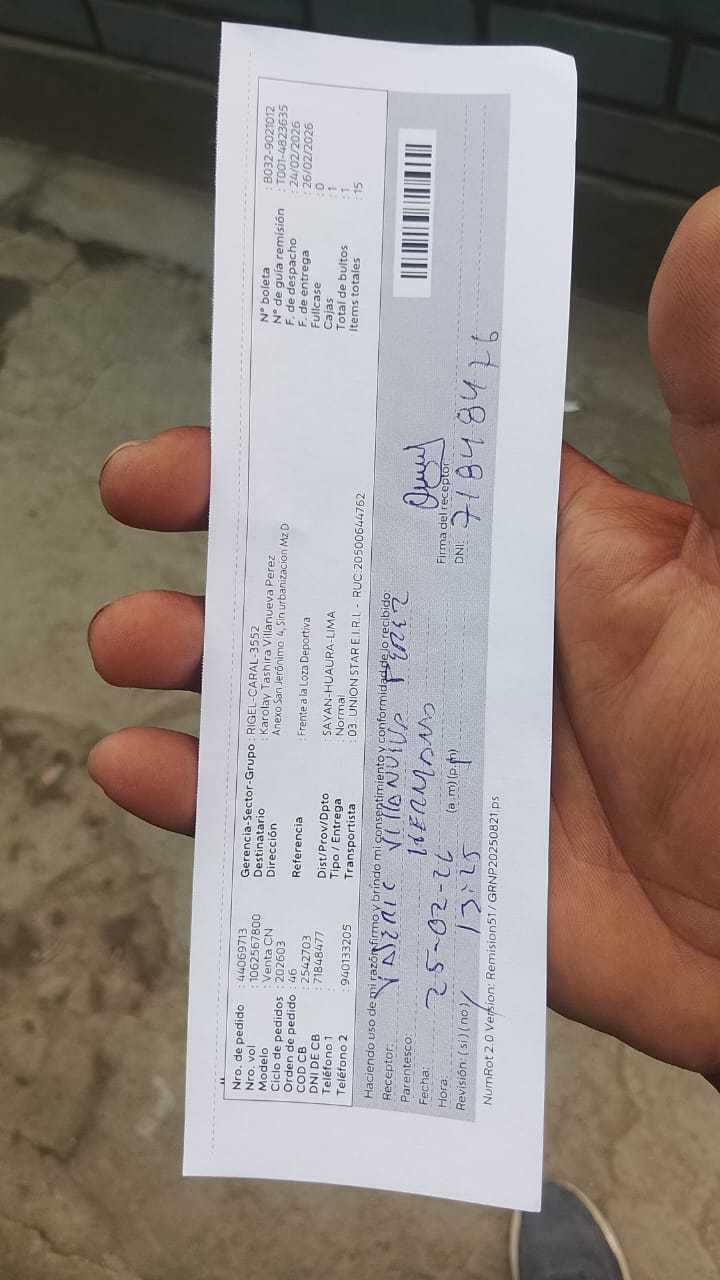 Nro. de pedido : 44069713
Nro. vol : 1062567800
Modelo : Venta CN
Ciclo de pedidos : 202603
Orden de pedido : 46
COD CB : 2542703
DNI DE CB : 71848477
Teléfono 1 :
Teléfono 2 : 940133205
Gerencia-Sector-Grupo : RIGEL-CARAL-3552
Destinatario : Karolay Tashira Villanueva Perez
Dirección Anexo San Jerónimo 4, Sin urbanizacion Mz D
Referencia : Frente a la Loza Deportiva
Dist/Prov/Dpto : SAYAN-HUAURA-LIMA
Tipo / Entrega : Normal
Transportista : 03 UNION STAR E.I.R.L - RUC:20500644762
N° boleta : B032-9021012
N° de guía remisión : T001-4823635
F. de despacho : 24/02/2026
F. de entrega : 26/02/2026
Fullcase : 0
Cajas : 1
Total de bultos : 1
Items totales : 15
Haciendo uso de mi razón, firmo y brindo mi consentimiento y conformidad de lo recibido.
Receptor: VILLANUEVA PEREZ
Parentesco: HERMANO
Firma del receptor:
Fecha: 25-02-26
DNI: 71848476
Hora: 13:25 (a.m)(p.m)
Revisión: (si)(no)
NumRot 2.0 Version: Remision51 / GRNP20250821.ps